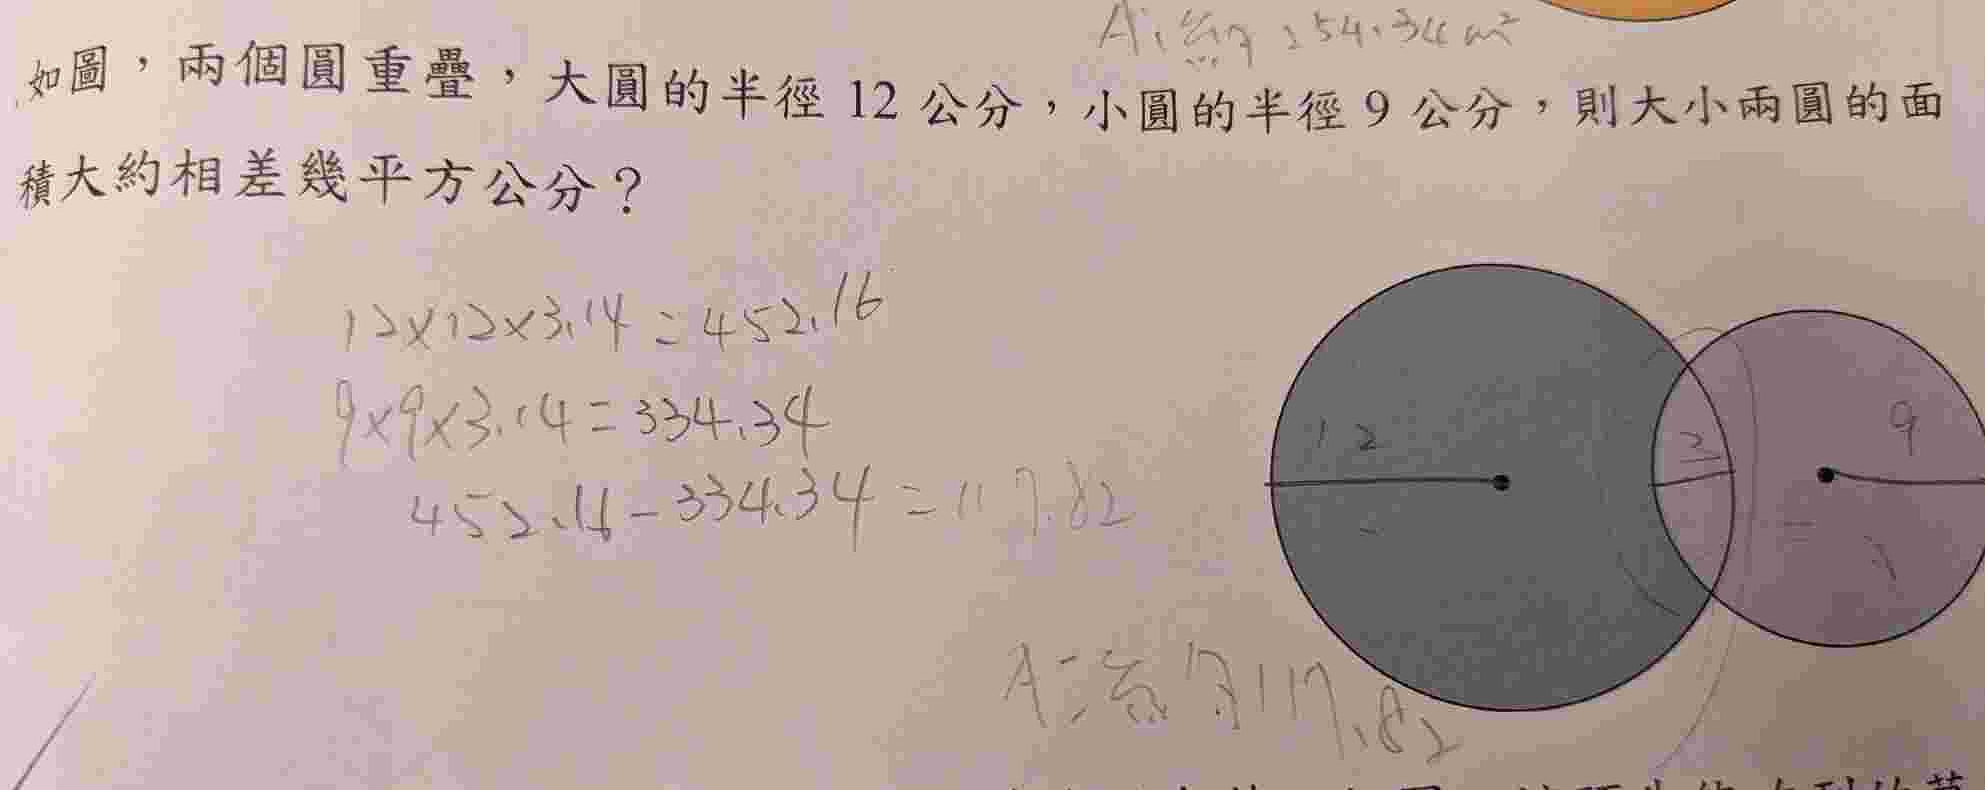 A:約254.34cm²
如圖，兩個圓重疊，大圓的半徑 12 公分，小圓的半徑 9 公分，則大小兩圓的面
積大約相差幾平方公分？
12×12×3.14=452.16
9×9×3.14=334.34
452.16-334.34=117.82
12
3
9
A:約117.82